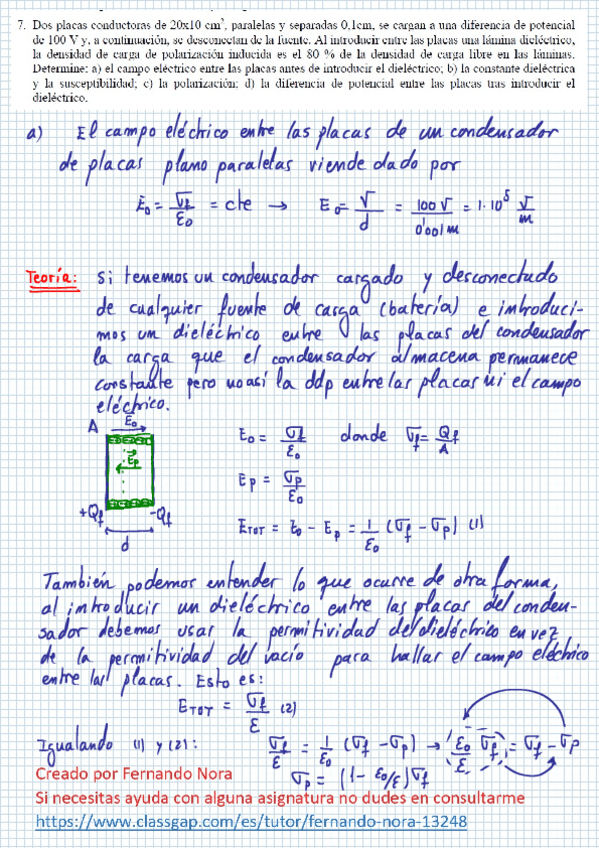 7. Dos placas conductoras de 20x10 cm², paralelas y separadas 0,1cm, se cargan a una diferencia de potencial
de 100 V y, a continuación, se desconectan de la fuente. Al introducir entre las placas una lámina dieléctrico,
la densidad de carga de polarización inducida es el 80 % de la densidad de carga libre en las láminas.
Determine: a) el campo eléctrico entre las placas antes de introducir el dieléctrico; b) la constante dieléctrica
y la susceptibilidad; c) la polarización; d) la diferencia de potencial entre las placas tras introducir el
dieléctrico.
a) El campo eléctrico entre las placas de un condensador
de placas plano paralelas viende dado por
E₀ = σf/ε₀ = cte → E₀ = V/d = 100 V/0'001 m = 1·10⁵ V/m
Teoría: Si tenemos un condensador cargado y desconectado
de cualquier fuente de carga (batería) e introduci-
mos un dieléctrico entre las placas del condensador
la carga que el condensador almacena permanece
constante pero no así la ddp entre las placas ni el campo
eléctrico.
A E₀
Ep
+Qf -Qf
d
E₀ = σf/ε₀ donde σf = Qf/A
Ep = σp/ε₀
ETOT = E₀ - Ep = 1/ε₀ (σf - σp) (1)
También podemos entender lo que ocurre de otra forma,
al introducir un dieléctrico entre las placas del conden-
sador debemos usar la permitividad del dieléctrico en vez
de la permitividad del vacío para hallar el campo eléctrico
entre las placas. Esto es:
ETOT = σf/ε (2)
Igualando (1) y (2): σf/ε = 1/ε₀ (σf - σp) → ε₀/ε σf = σf - σp
σp = (1 - ε₀/ε) σf
Creado por Fernando Nora
Si necesitas ayuda con alguna asignatura no dudes en consultarme
https://www.classgap.com/es/tutor/fernando-nora-13248